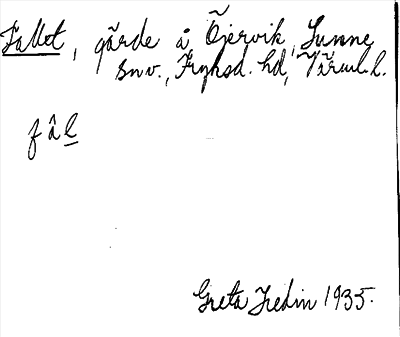 Fallet, gärde å Öjervik, Sunne
snv., Fryksd. hd, Värml.
fâl
Greta Hedin 1935.